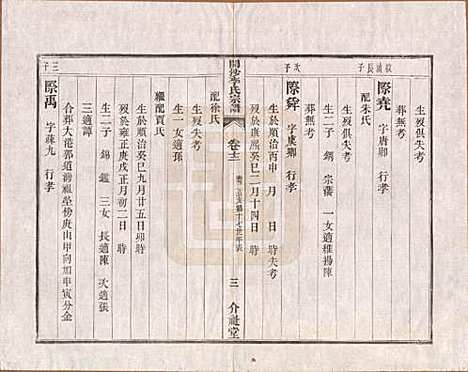 枝浦長子
際堯　字唐卿　行孝
生歿俱失考
配朱氏
生歿俱失考
生二子　錫　宗藩　一女適稚揚陳
葬無考
次子
際舜　字虞卿　行孝
生於順治丙申　月　日　時失考
歿於康熙癸巳二月十四日　時
葬無考
開沙李氏宗譜
卷十三
三　介祉堂
配徐氏
生歿失考
生一女適孫
繼配賈氏
生於順治癸巳九月廿五日卯時
歿於雍正庚戌正月初二日　時
生二子　錫　鑑　三女　長適陳　次適張
三適譚
合葬大港郭道灣祖塋傍庚山甲向申寅分金
三子
際禹　字疎九　行孝